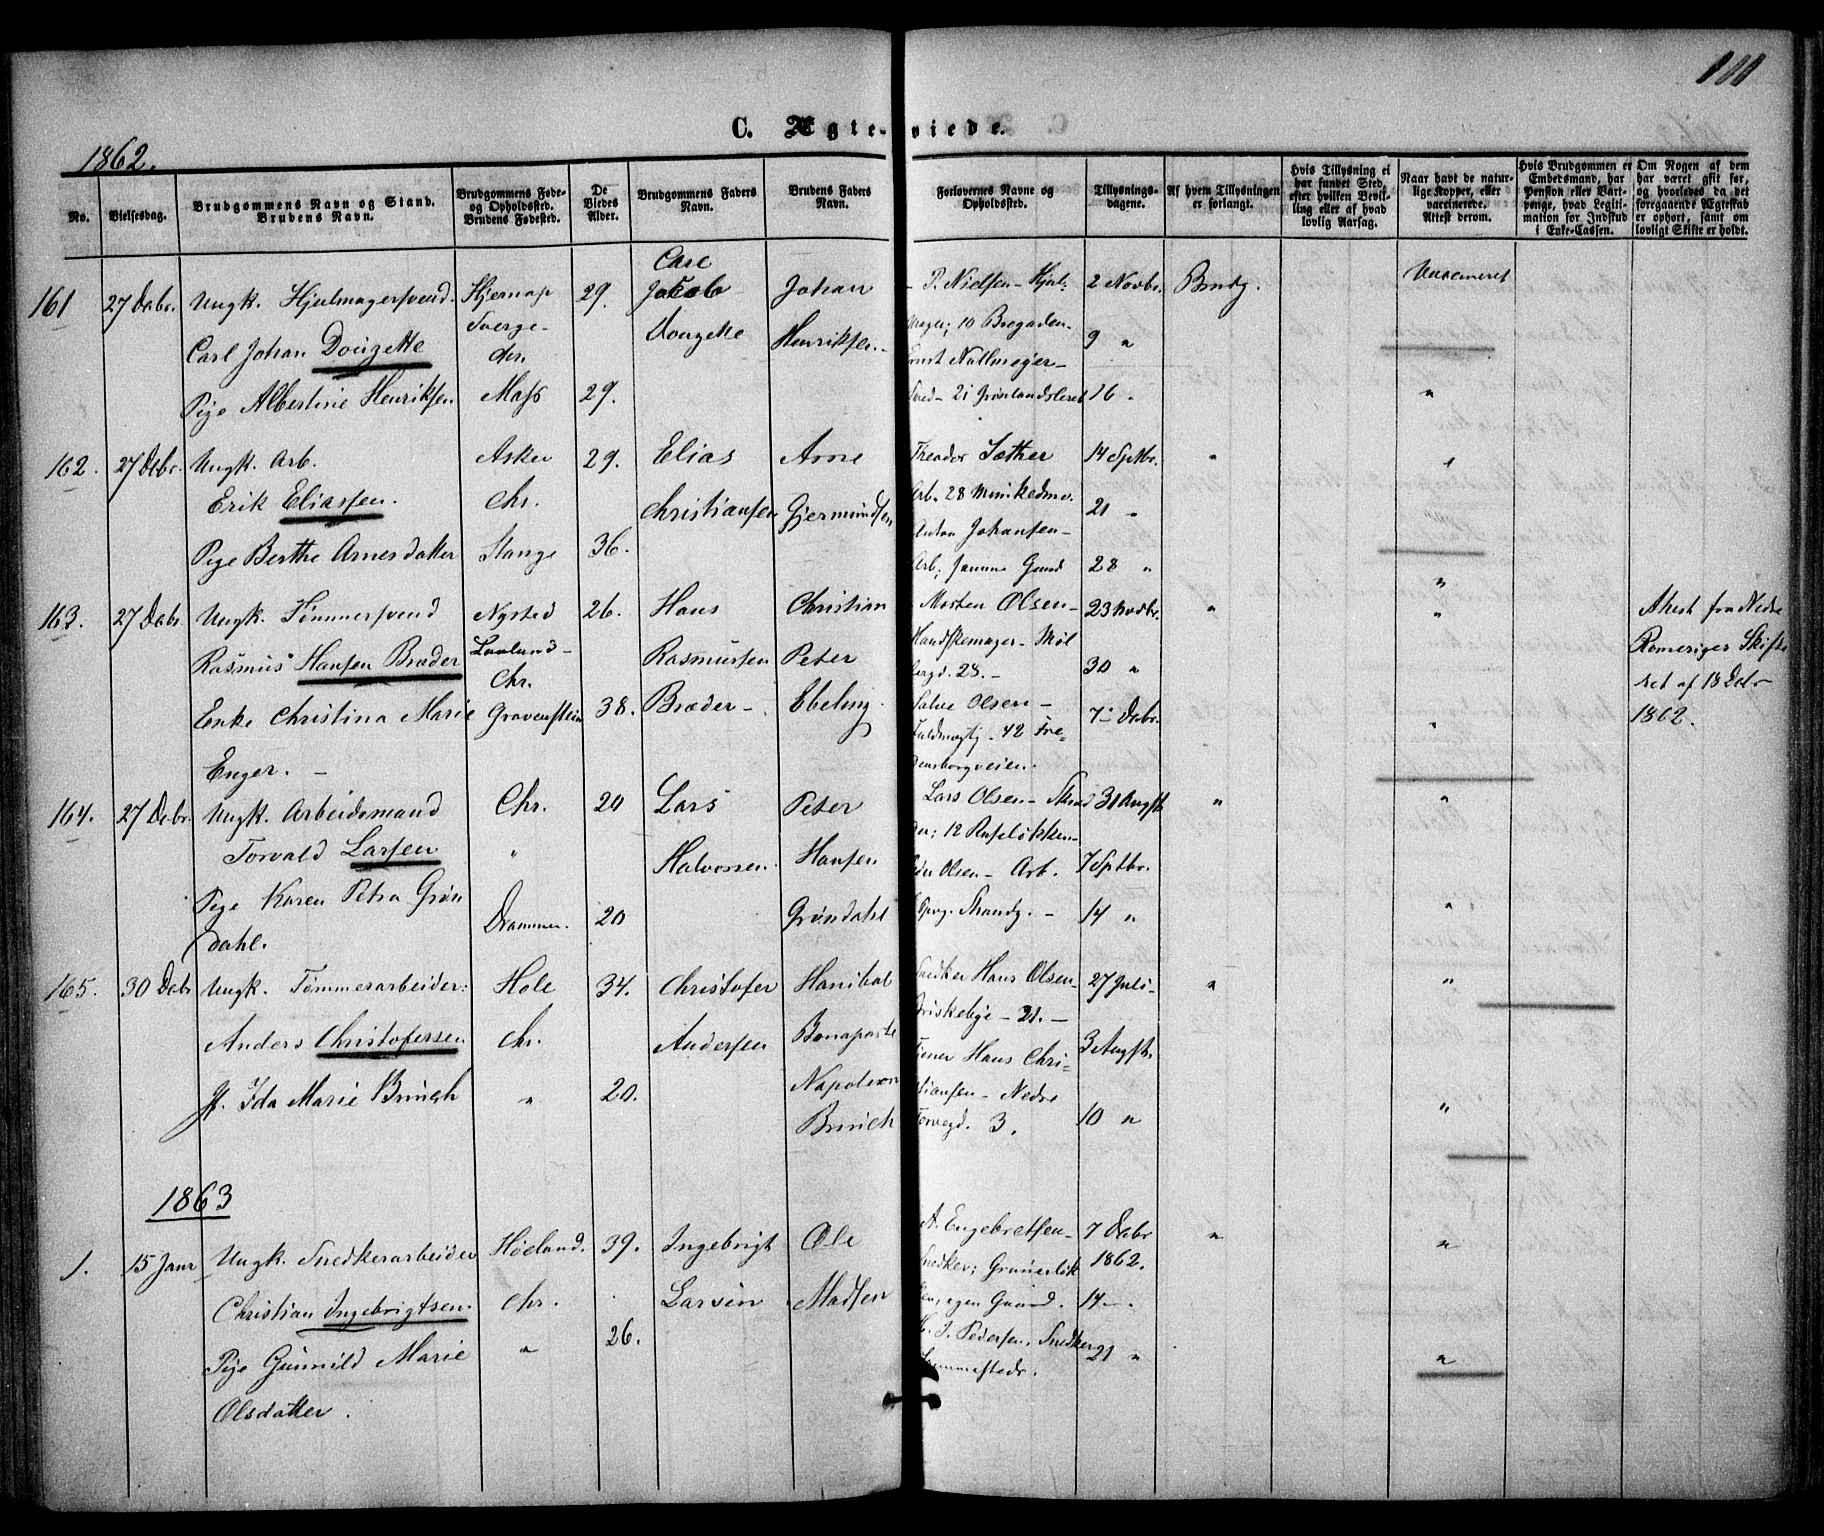 111
C. Ægte-viede.
1862.
No.
Vielsesdag.
Brudgommens Navn og Stand.
Brudens Navn.
Brudgommens Føde-
og Opholdssted.
Brudens Fødested.
De
Viedes
Alder.
Brudgommens Faders
Navn.
Brudens Faders
Navn.
Forlovernes Navne og
Opholdssted.
Tillysnings-
dagene.
Af hvem Tillysningen
er forlangt.
Hvis Tillysning ei
har fundet Sted,
efter hvilken Bevil-
ling eller af hvad
lovlig Aarsag.
Naar havt de natur-
lige Kopper, eller
vaccinerede.
Attest derom.
Hvis Brudgommen er
Embedsmand, har
Pension eller Vart-
penge, hvad Legiti-
mation for Indskud
i Enke-Cassen.
Om Nogen af dem
har været gift før,
og hvorledes da det
foregaaende Ægteskab
er ophørt, samt om
lovligt Skifte er holdt.
161 27 Debr. Ungk. Hjulmagersvend
Carl Johan Douzette
Pige Albertine Henriksen
Sverge-
Moss
29.
29.
Carl
Jakob
Douzette
Johan
Henriksen
P. Nielsen - Hjul-
mager; 10 Brogaden
21 Grønlandsleret
2 Novbr.
9 "
16 "
Brudg.
Vaccineret
"
162. 27 Debr. Ungk. Arb.
Erik Eliassen.
Pige Berthe Arnesdatter
Asker
Chr.
Stange
29.
36.
Elias
Christiansen
Arne
Gjermundsen
Theodor Sæther
Arb. 28
Anton Johansen -
Arb;
14 Septbr.
21 "
28 "
"
"
"
163. 27 Debr. Ungk. Tømmersvend
Rasmus Hansen Brøder
Enke Christina Marie
Enger. -
Nysted
Laaland -
Chr.
Gravenstein
26.
38.
Hans
Rasmussen
Brøder -
Christian
Peter
Ebeling.
Morten Olsen -
Handskemager - Møl
lergd. 28. -
Salve Olsen -
Fuldmægtig - 42 Fre-
densborgveien.
23 Novbr.
30 "
7 Debr.
"
"
"
Attest fra Nedre
Romeriges Skifte
ret af 18 Debr
1862.
164. 27 Debr. Ungk. Arbeidsmand
Torvald Larsen
Pige Karen Petra Grøn
dahl.
Chr.
"
Drammen.
20
20
Lars
Halvorsen
Peter
Hansen
Grøndahl
Lars Olsen -
12 Ruseløkken
Olsen - Arb.
31 Augst.
7 Septbr.
14 "
"
"
"
165. 30 Debr Ungk. Tømmerarbeider:
Anders Christofersen
P. Ida Marie Brinch
Hole
Chr.
"
34.
20.
Christofer
Andersen
Hanibal
Bonaparte
Napoleon
Brinch
Snedker Hans Olsen
Briskebye - 21. -
Tjener Hans Chri-
stiansen - Nedre
Torvegd. 3.
27 Juli
3 Augst.
10 "
"
"
"
1863
1. 15 Janr Ungk. Snedkerarbeider
Christian Ingebrigtsen.
Pige Gunnild Marie
Olsdatter.
Høland.
Chr.
"
39.
26.
Ingebrigt
Larsen
Ole
Madsen
A. Engebretsen -
Snedker; Grünerløk
ken, egen Gaard.
H. J. Pedersen, Snedker
sammesteds.
7 Debr
1862.
14 -
21 "
"
"
"